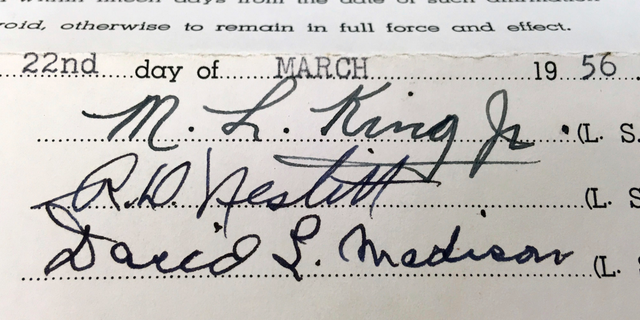 days from the date of such
void, otherwise to remain in full force and effect.
22nd day of MARCH 19 56
M. L. King Jr. (L. S.
R. D. Nesbitt (L. S
David L. Madison (L.